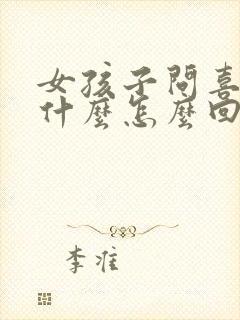 女孩子問喜
什麼怎麼回
李准